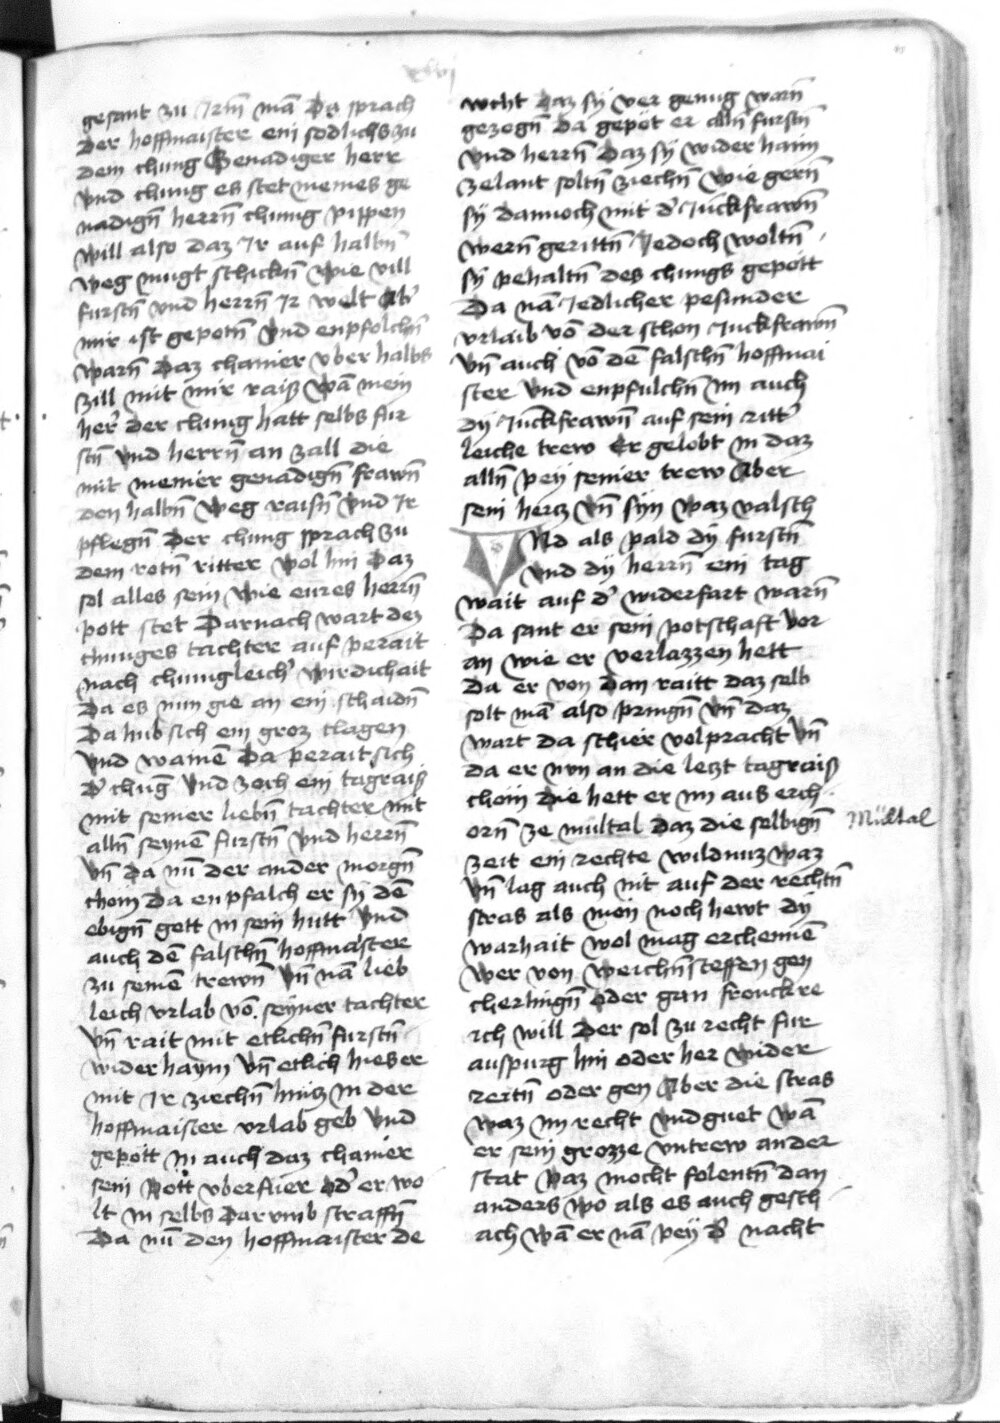 xlvi
gesant zu irm mā Da sprach
der hoffmaister ein sodlichs zu
dem chūnig Genādiger herr
vnd chūnig es stet meines ge
nadign̄ herrn̄ chūnig pippen
will also daz Ir auf halbn̄
weg mugt schickn̄ wie vill
furstn̄ vnd herrn̄ Ir welt Ab'
mir ist gepotn̄ vnd enpfolchn̄
warn̄ daz chainer vber halbs
zill mit mir raiß wā mein
her' der chūnig hatt selbs fur
stn̄ vnd herrn̄ an zall die
mit meiner genādign̄ frawn̄
den halbn̄ weg raisn̄ vnd Ir
pflegn̄ Der chūng sprach zu
dem rotn̄ ritter wol hin daz
sol alles sein wie eures herrn̄
pott stet Darnach wart dez
chuniges tachter auf perait
nach chūnigleich' wirdichait
Da es nun gie an ein schaidn̄
Da hub sich ein groz clagen
vnd wainē Da perait sich
d' chūḡ vnd zoch ein tagraiß
mit seiner liebn̄ tachter mit
alln̄ seynē furstn̄ vnd herrn̄
vn̄ da nū der ander morgn̄
chom da enpfalch er sy dē
ebign̄ gott in sein hutt vnd
auch dē falschn̄ hoffmaister
zu seinē trewn̄ vn̄ nā lieb
leich vrlab vō seyner tachter
vn̄ rait mit etlichn̄ furstn̄
wider haym vn̄ etlich hieser
mit Ir ziechn̄ hintz in der
hoffmaister vrlab geb vnd
gepött in auch daz chainer
sein pott vberfüer od' er wo
lt in selbs darumb straffn̄
Da nū den hoffmaister de
wcht daz sy ver genug warn̄
gezogn̄ da gepöt er alln̄ furstn̄
vnd herrn̄ daz sy wider haim
ze lant soltn̄ ziechn̄ wie gern̄
sy dannoch mit d' Juckfrawn̄
wern̄ gerittn̄ Jedoch woltn̄
sy pehaltn̄ des chungs gepott
Da nā iedlicher pesunder
vrlaib vō der schon Juckfrawn̄
vn̄ auch vō dē falschn̄ hoffmai
ster vnd enpfulchn̄ im auch
dy Juckfrawn̄ auf sein ritt'
leiche trew Er gelobt in daz
alln̄ pey seiner trew Aber
sein hertz vn̄ syn waz valsch
VNd als pald dy furstn̄
vnd dy herrn̄ ein tag
wait auf d' widerfart warn̄
Da sant er sein potschaft vor
an wie er verlazzen hett
da er von dan raitt daz selb
solt mā also pringn̄ vn̄ daz
wart da schier volpracht vn̄
da er nvn an die letzt tagraiß
chom die hett er im aus erch
orn̄ ze multal daz die selbign̄
Mültal
zeit ein rechte wildnuz waz
vn̄ lag auch nit auf der rechtn̄
stras als mon noch hewt dy
warhait wol mag erchennē
wer von weichn̄steffen gen
cherlingn̄ oder gan franckre
ich will der sol zu recht fur
auspurg hin oder her wider
reitn̄ oder gen Aber die stras
waz im recht vnd guet wā
er sein grozze vntrew ander
stat waz mocht folentn̄ dan
anders wo als es auch gesch
ach wā er nā pey d' nacht